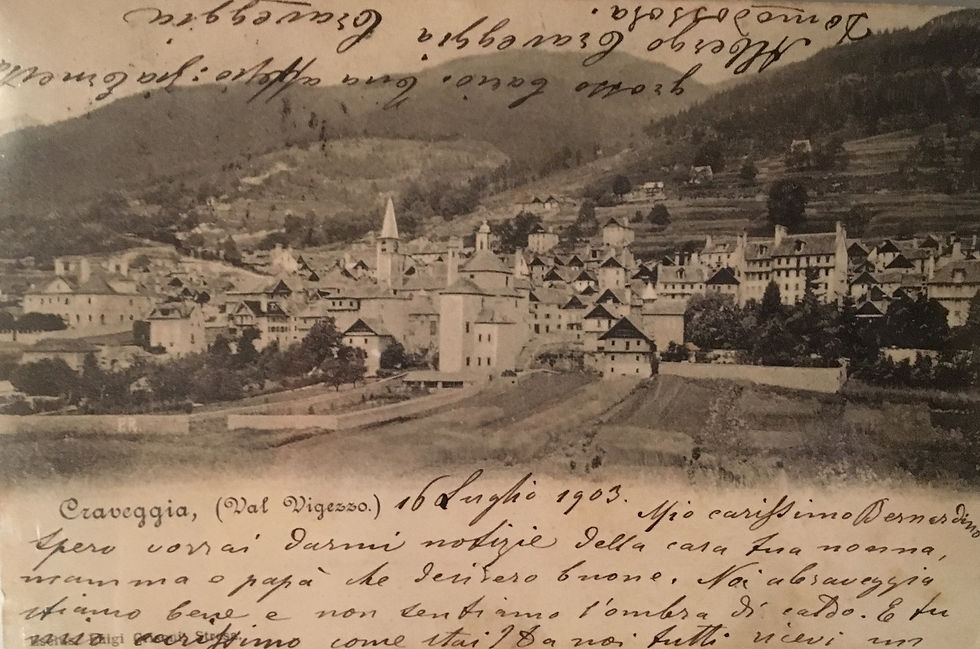 Craveggia, (Val Vigezzo.) 16 Luglio 1903. Mio carissimo Bernardino
spero vorrai darmi notizie della cara tua nonna,
mamma e papà che desidero buone. Noi a Craveggia
stiamo bene e non sentiamo l'ombra di caldo. E tu
mio carissimo come stai? Da noi tutti ricevi un
Luigi Stresa
grosso bacio. tua affsso:
Albergo Craveggia
Domodossola. Craveggia